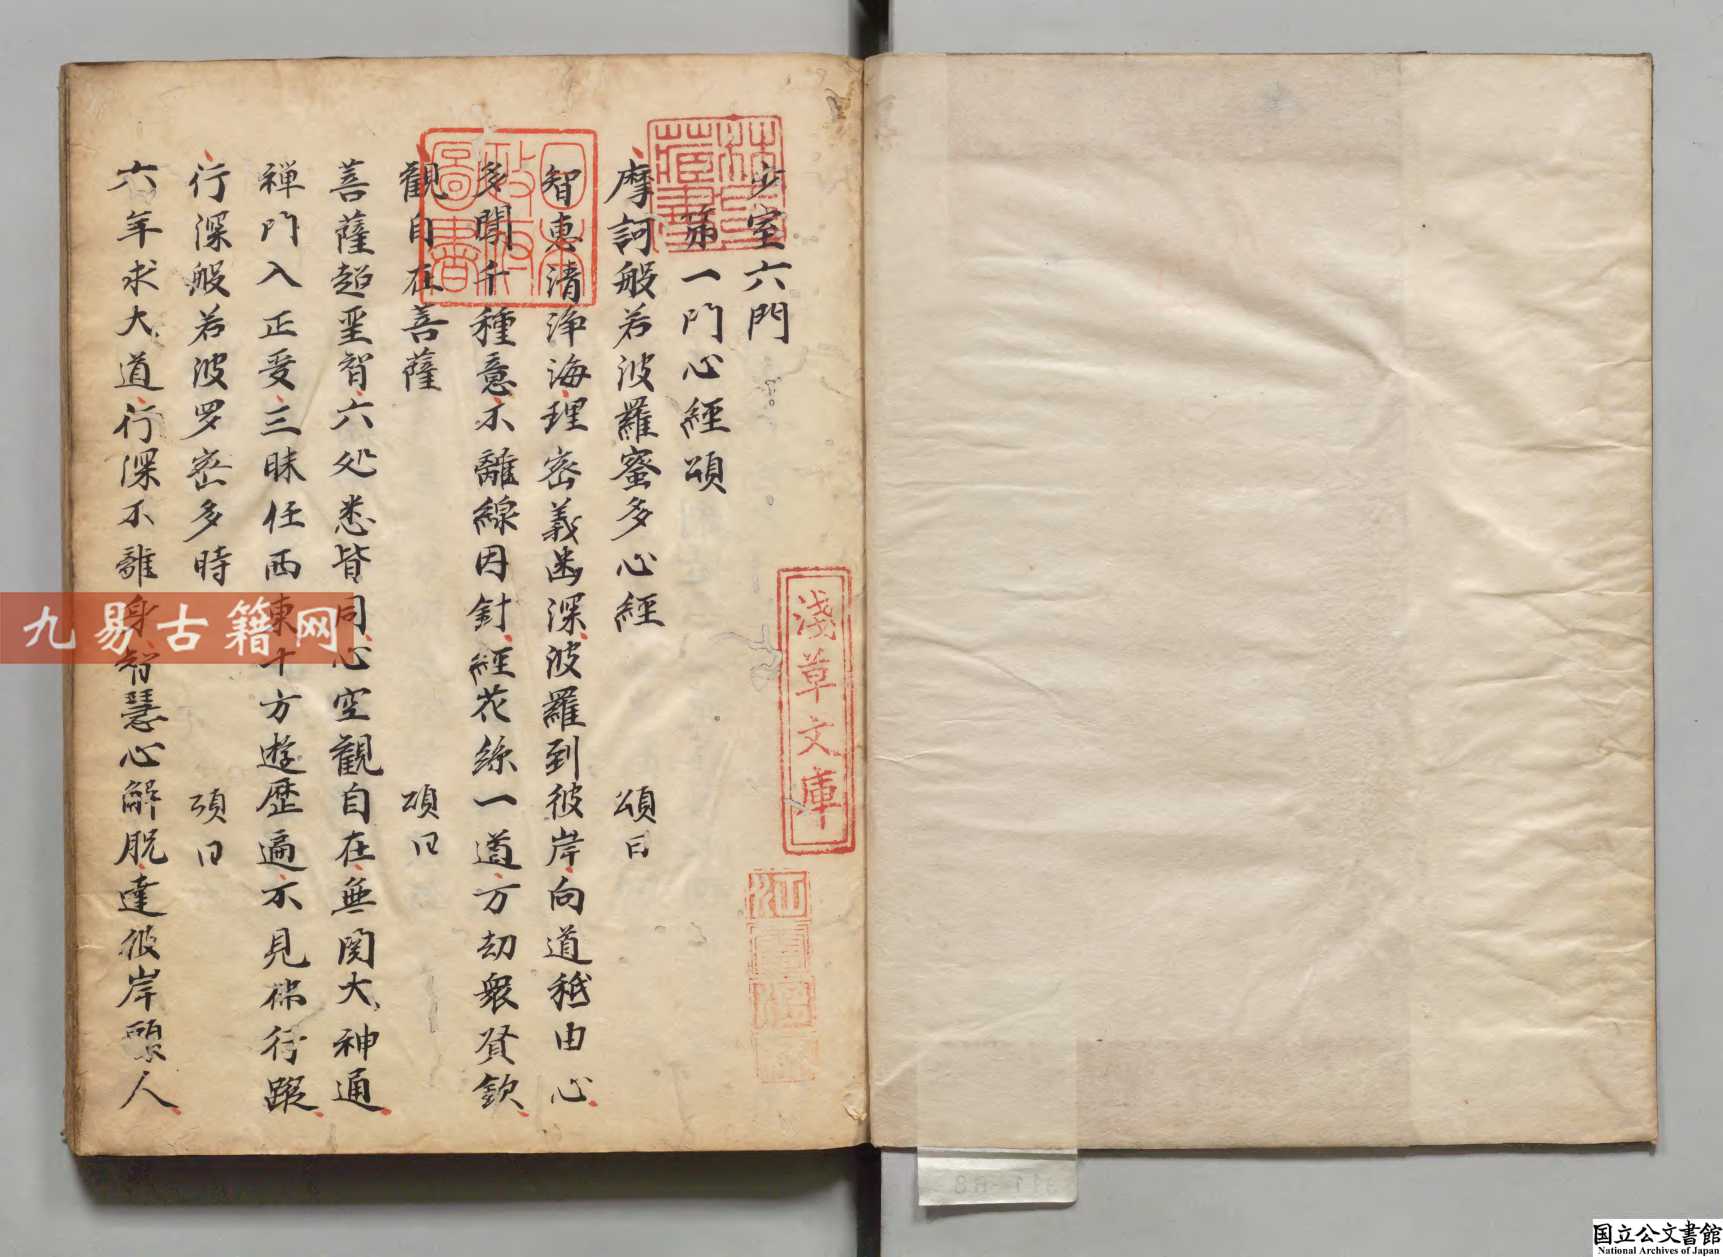 少室六門
第一門心經頌
摩訶般若波羅蜜多心經 頌曰
智恵清浄海理密義幽深波羅到彼岸向道秖由心
多聞千種意不離線因針經花絲一道万劫衆賢欽
觀自在菩薩 頌曰
菩薩超聖智六処悉皆同心空觀自在無閡大神通
禅門入正受三昧任西東十方遊歴遍不見佛行蹤
行深般若波罗密多時 頌曰
六年求大道行深不離身智慧心解脱達彼岸頭人
淺草文庫
日本政府圖書
藏書
九易古籍网
国立公文書館
National Archives of Japan